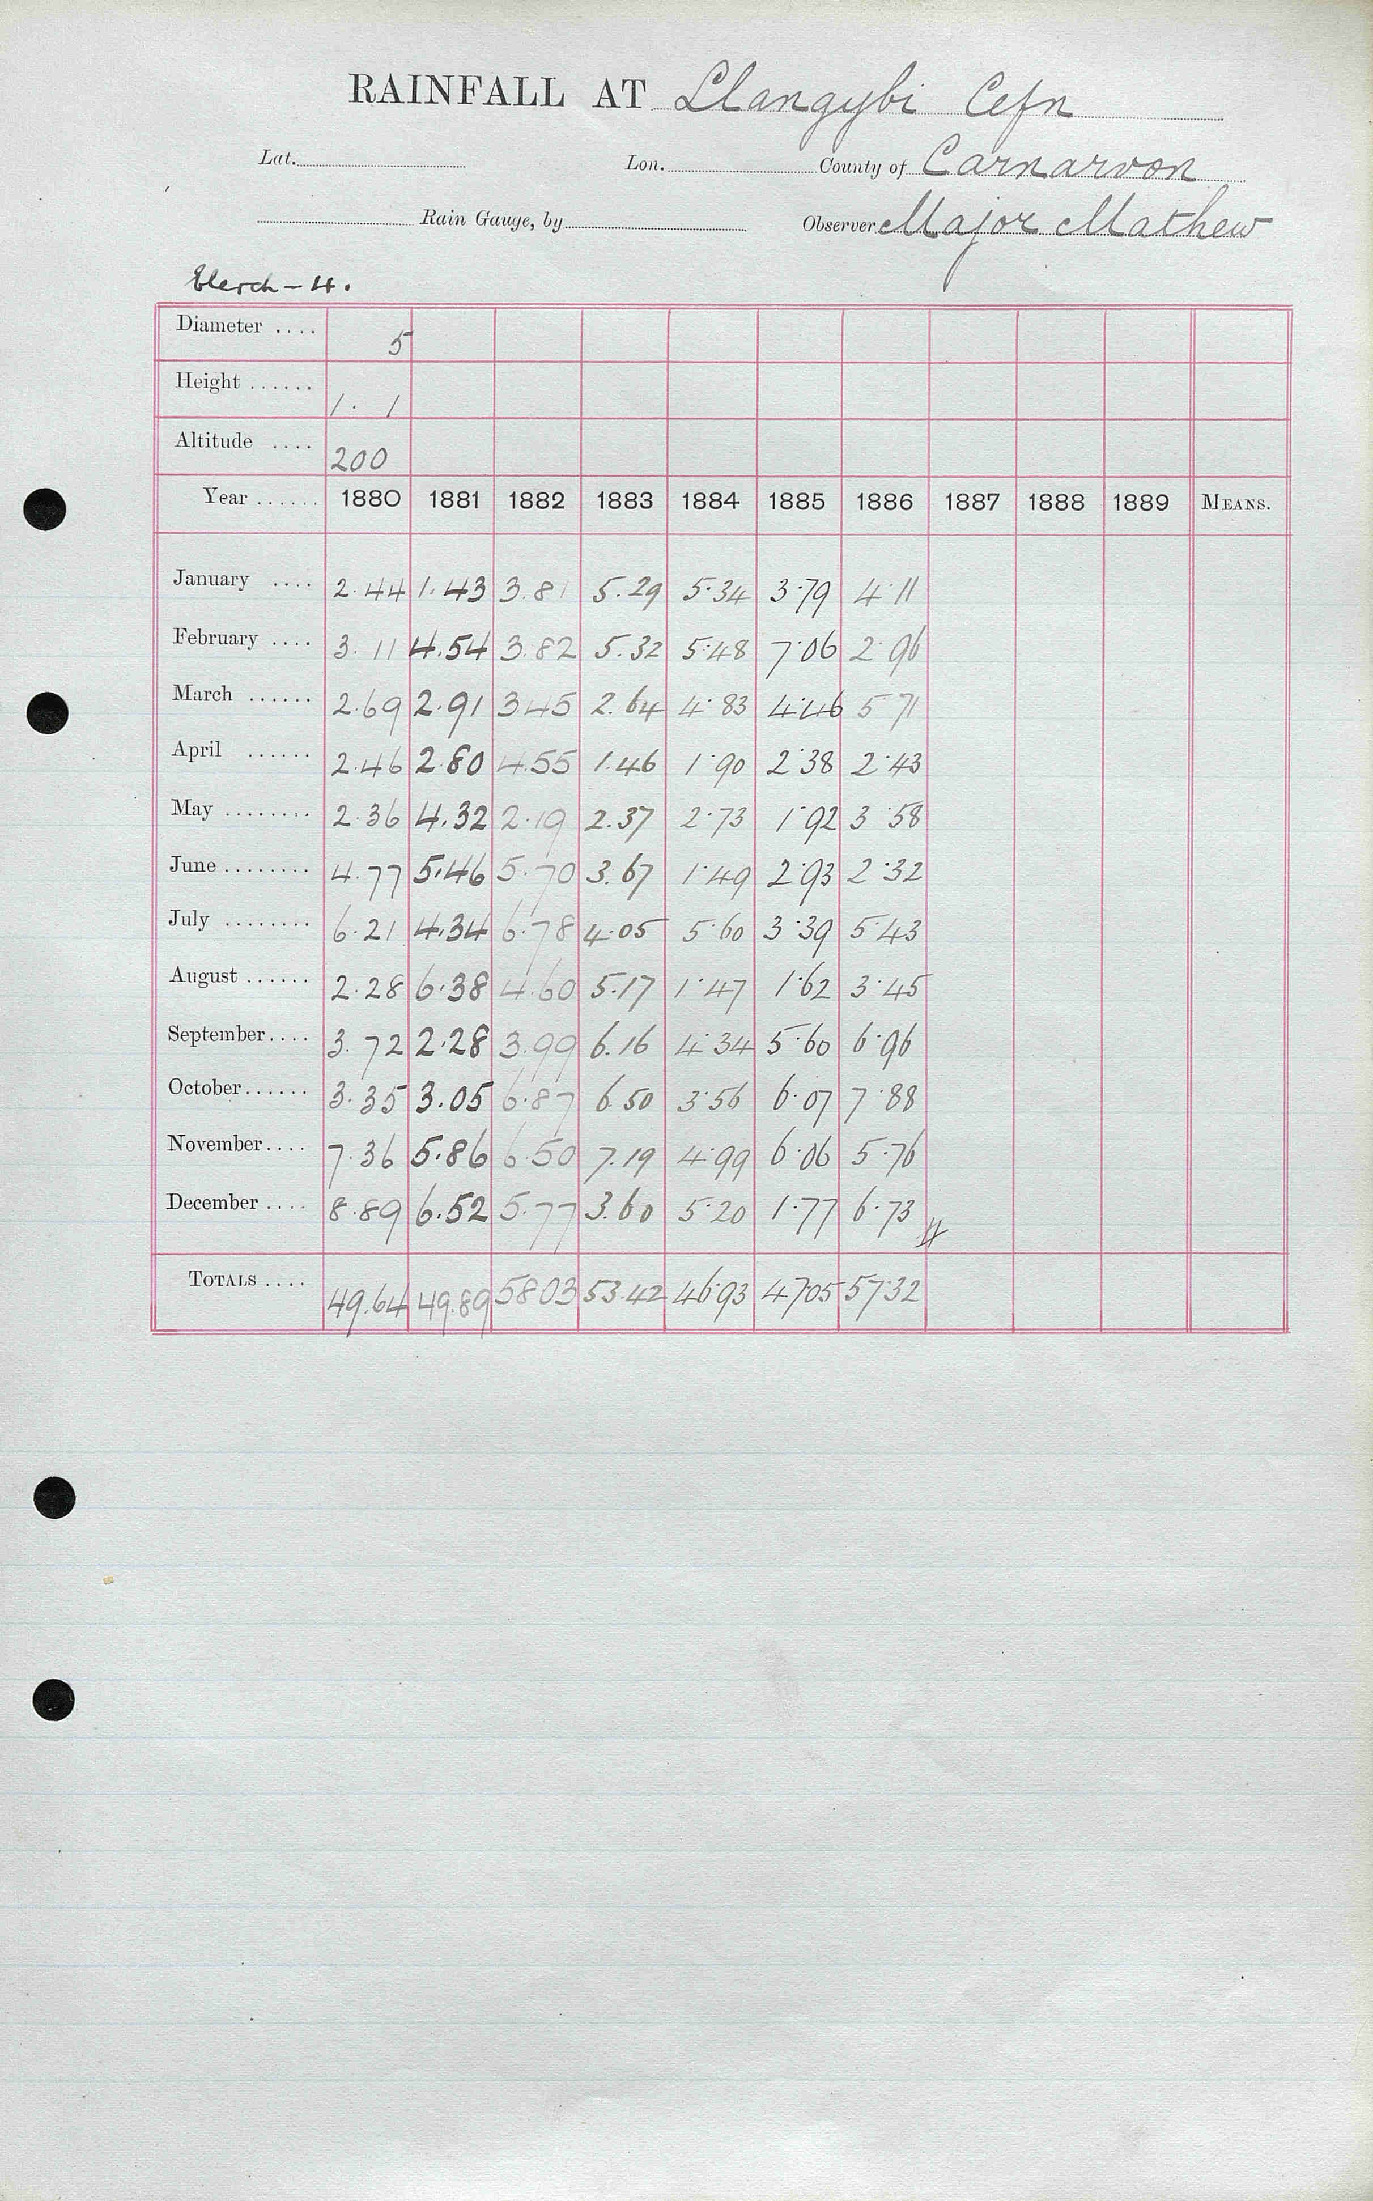 RAINFALL AT Llangybi Cefn
Lat. Lon. County of Carnarvon
Rain Gauge, by Observer Major Mathew
Elerch – 4.
Diameter .... 5
Height ...... 1. 1
Altitude .... 200
Year ...... 1880 1881 1882 1883 1884 1885 1886 1887 1888 1889 MEANS.
January .... 2.44 1.43 3.81 5.29 5.34 3.79 4.11
February .... 3.11 4.54 3.82 5.32 5.48 7.06 2.96
March ...... 2.69 2.91 3.45 2.64 4.83 4.46 5.71
April ...... 2.46 2.80 4.55 1.46 1.90 2.38 2.43
May ........ 2.36 4.32 2.19 2.37 2.73 1.92 3.58
June ........ 4.77 5.46 5.70 3.67 1.49 2.93 2.32
July ........ 6.21 4.34 6.78 4.05 5.60 3.39 5.43
August ...... 2.28 6.38 4.60 5.17 1.47 1.62 3.45
September.... 3.72 2.28 3.99 6.16 4.34 5.60 6.96
October...... 3.35 3.05 6.87 6.50 3.56 6.07 7.88
November.... 7.36 5.86 6.50 7.19 4.99 6.06 5.76
December .... 8.89 6.52 5.77 3.60 5.20 1.77 6.73
TOTALS .... 49.64 49.89 58.03 53.42 46.93 47.05 57.32